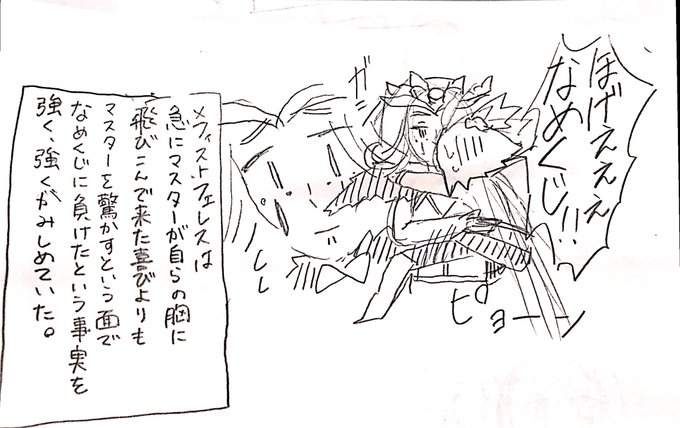 ほげえぇぇ
なめくじ!!
ガ
ピョーーン
メフィストフェレスは
急にマスターが自らの胸に
飛びこんで来た喜びよりも
マスターを驚かすという面で
なめくじに負けたという事実を
強く、強くがみしめていた。